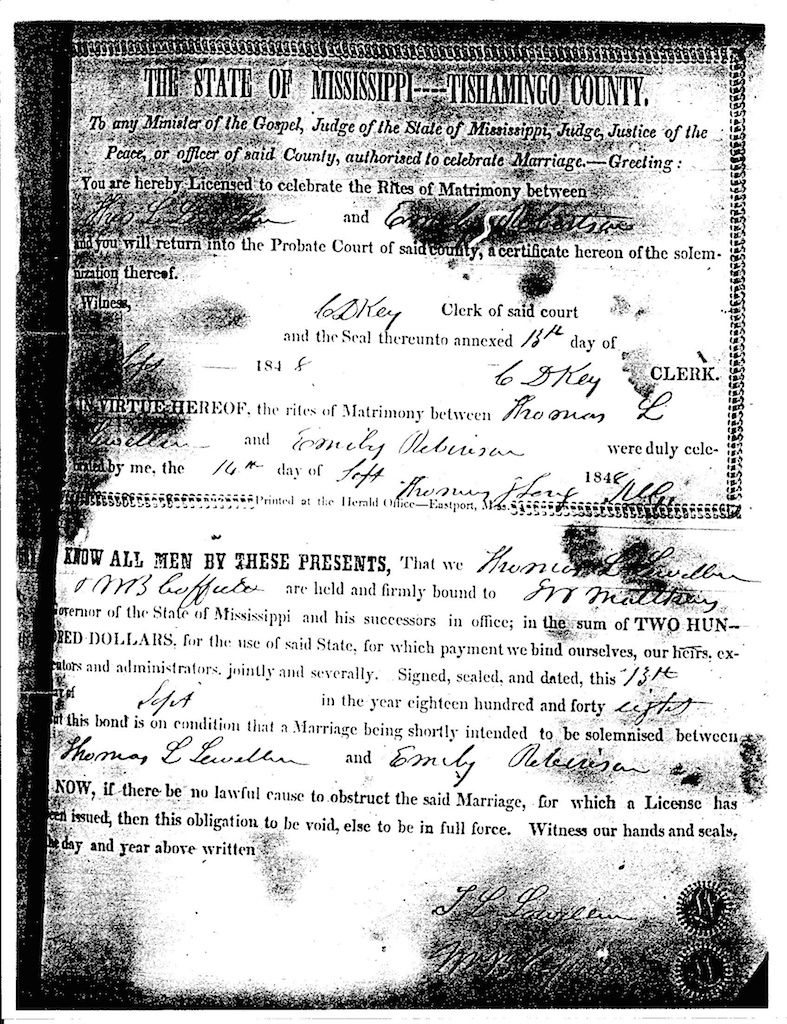 THE STATE OF MISSISSIPPI----TISHAMINGO COUNTY.
To any Minister of the Gospel, Judge of the State of Mississippi, Judge, Justice of the
Peace, or officer of said County, authorised to celebrate Marriage.—Greeting:
You are hereby Licensed to celebrate the Rites of Matrimony between
Thos L Lewellen and Emily Robertson
and you will return into the Probate Court of said county, a certificate hereon of the solem-
nization thereof.
Witness,
C D Key Clerk of said court
and the Seal thereunto annexed 13th day of
Sept 1848
C D Key CLERK.
IN VIRTUE HEREOF, the rites of Matrimony between Thomas L
Lewellen and Emily Robinson were duly cele-
brated by me, the 14th day of Sept 1848
Thomas J Long
Printed at the Herald Office—Eastport, Miss.
KNOW ALL MEN BY THESE PRESENTS, That we Thomas L Lewellen
& are held and firmly bound to J W Matthews
Governor of the State of Mississippi and his successors in office; in the sum of TWO HUN-
DRED DOLLARS, for the use of said State, for which payment we bind ourselves, our heirs, ex-
ecutors and administrators, jointly and severally. Signed, sealed, and dated, this 13th
day of Sept in the year eighteen hundred and forty eight
but this bond is on condition that a Marriage being shortly intended to be solemnised between
Thomas L Lewellen and Emily Robinson
NOW, if there be no lawful cause to obstruct the said Marriage, for which a License has
been issued, then this obligation to be void, else to be in full force. Witness our hands and seals,
the day and year above written
T L Lewellen